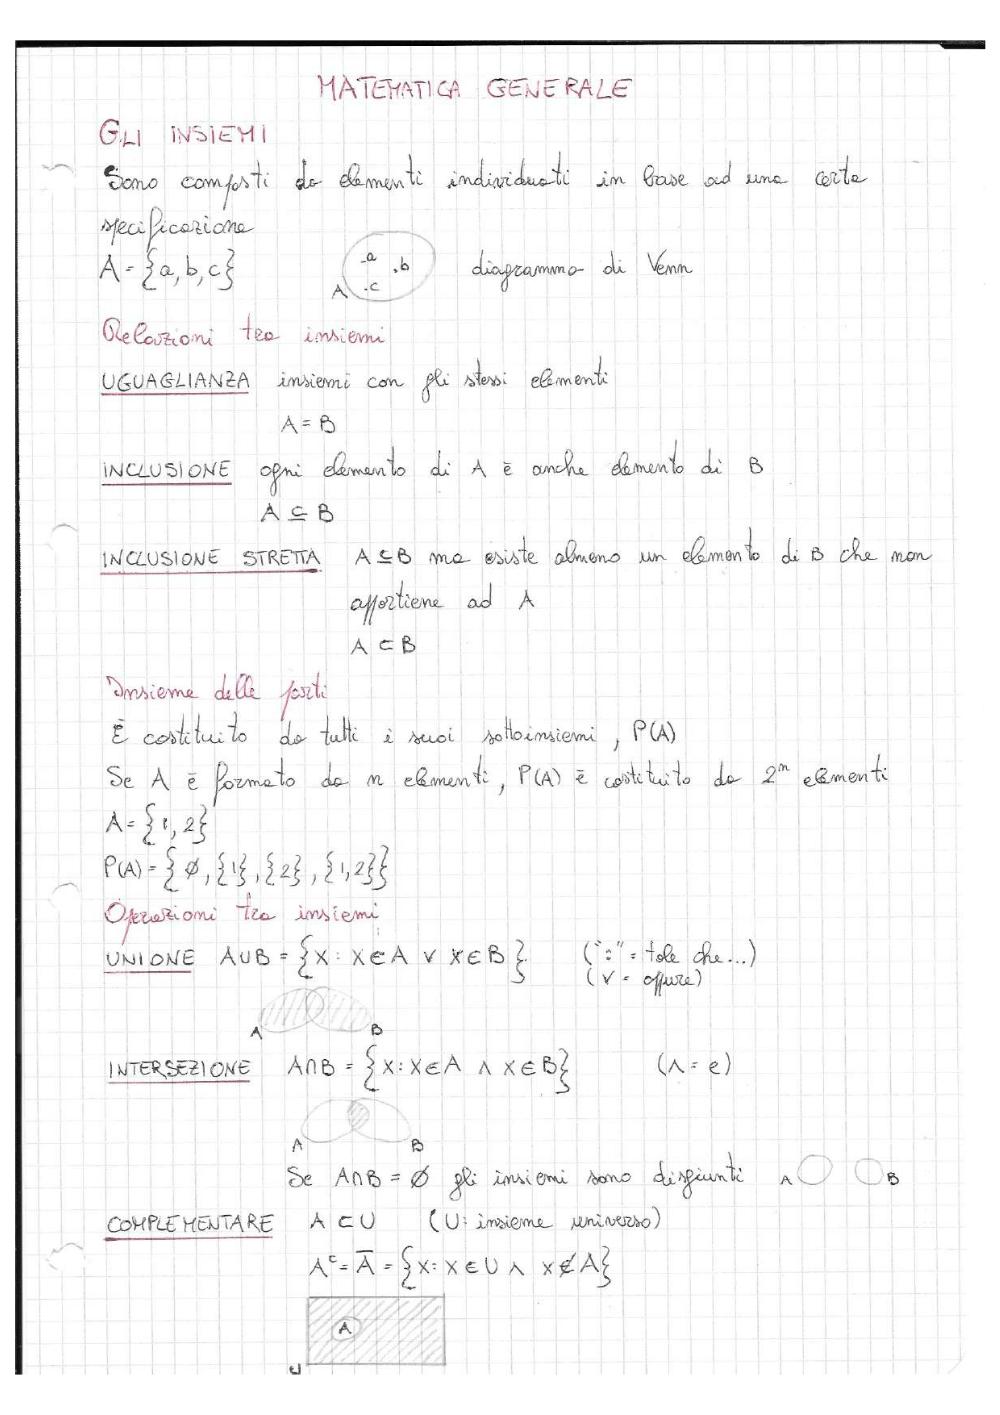 MATEMATICA GENERALE
GLI INSIEMI
Sono composti da elementi individuati in base ad una certa
specificazione
A = {a, b, c} A .a .b .c diagramma di Venn
Relazioni tra insiemi
UGUAGLIANZA insiemi con gli stessi elementi
A = B
INCLUSIONE ogni elemento di A è anche elemento di B
A ⊆ B
INCLUSIONE STRETTA A ⊆ B ma esiste almeno un elemento di B che non
appartiene ad A
A ⊂ B
Insieme delle parti
È costituito da tutti i suoi sottoinsiemi, P(A)
Se A è formato da n elementi, P(A) è costituito da 2ⁿ elementi
A = {1, 2}
P(A) = {∅, {1}, {2}, {1,2}}
Operazioni tra insiemi
UNIONE A∪B = {x : x∈A ∨ x∈B} (":" = tale che...)
(∨ = oppure)
A B
INTERSEZIONE A∩B = {x : x∈A ∧ x∈B} (∧ = e)
A B
Se A∩B = ∅ gli insiemi sono disgiunti A B
COMPLEMENTARE A ⊂ U (U: insieme universo)
Aᶜ = A̅ = {x : x∈U ∧ x∉A}
A
U